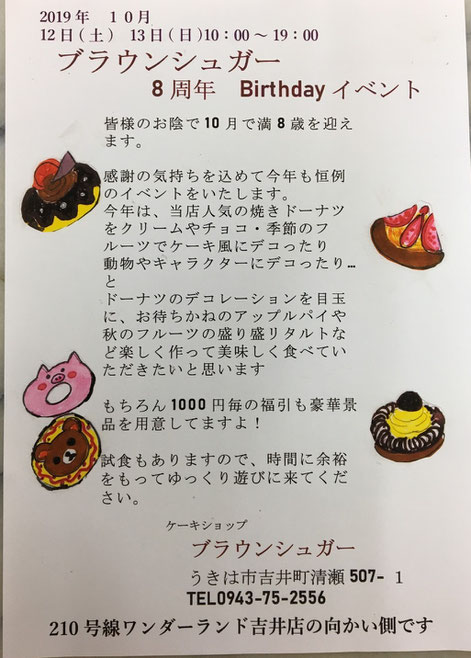 2019年 10月
12日(土) 13日(日)10:00～19:00
ブラウンシュガー
8周年 Birthdayイベント
皆様のお陰で10月で満8歳を迎え
ます。
感謝の気持ちを込めて今年も恒例
のイベントをいたします。
今年は、当店人気の焼きドーナツ
をクリームやチョコ・季節のフ
ルーツでケーキ風にデコったり
動物やキャラクターにデコったり…
と
ドーナツのデコレーションを目玉
に、お待ちかねのアップルパイや
秋のフルーツの盛り盛リタルトな
ど楽しく作って美味しく食べてい
ただきたいと思います
もちろん1000円毎の福引も豪華景
品を用意してますよ！
試食もありますので、時間に余裕
をもってゆっくり遊びに来てくだ
さい。
ケーキショップ
ブラウンシュガー
うきは市吉井町清瀬507-１
TEL0943-75-2556
210号線ワンダーランド吉井店の向かい側です